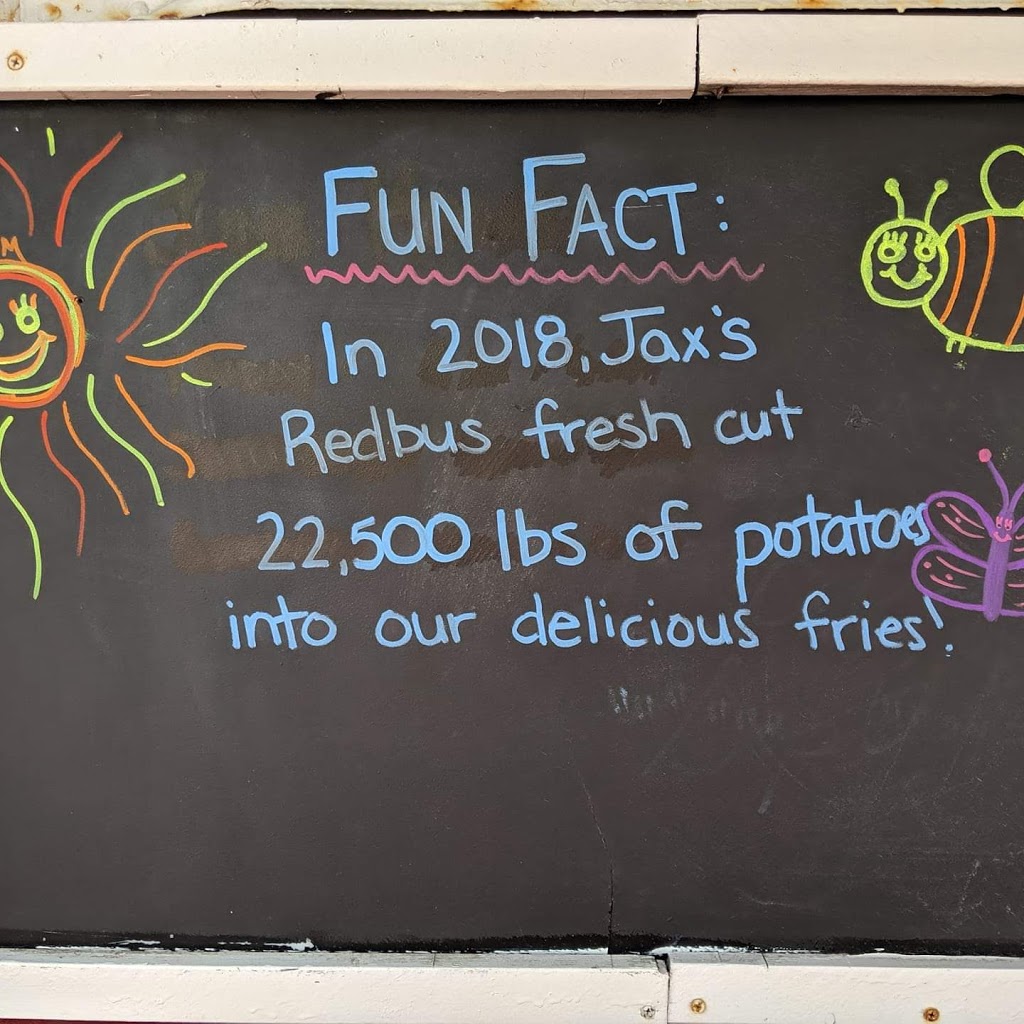 FUN FACT:
In 2018, Jax's
Redbus fresh cut
22,500 lbs of potatoes
into our delicious fries!